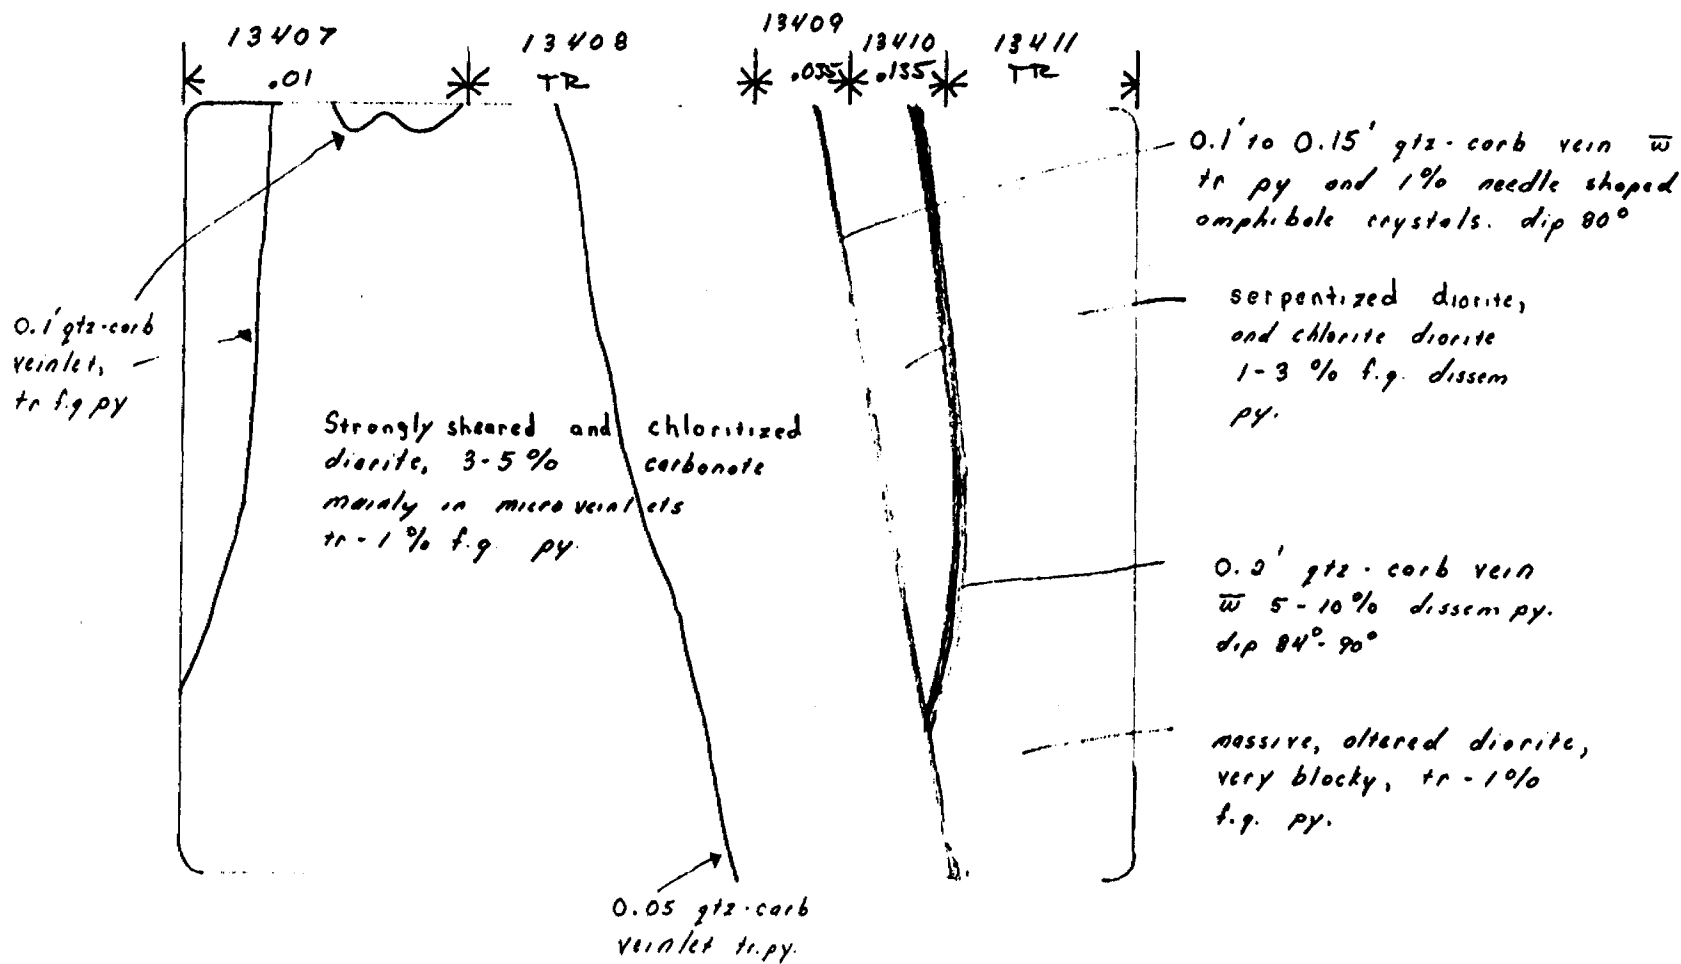 13407
.01
13408
TR
13409
.035
13410
.135
13411
TR
0.1' to 0.15' qtz-carb vein w̅
tr py and 1% needle shaped
amphibole crystals. dip 80°
serpentized diorite,
and chlorite diorite
1-3 % f.g. dissem
py.
0.1' qtz-carb
veinlet,
tr f.g py
Strongly sheared and chloritized
diorite, 3-5% carbonate
mainly in microveinlets
tr-1% f.g. py.
0.2' qtz-carb vein
w̅ 5-10% dissem py.
dip 84°-90°
massive, altered diorite,
very blocky, tr-1%
f.g. py.
0.05 qtz-carb
veinlet tr.py.